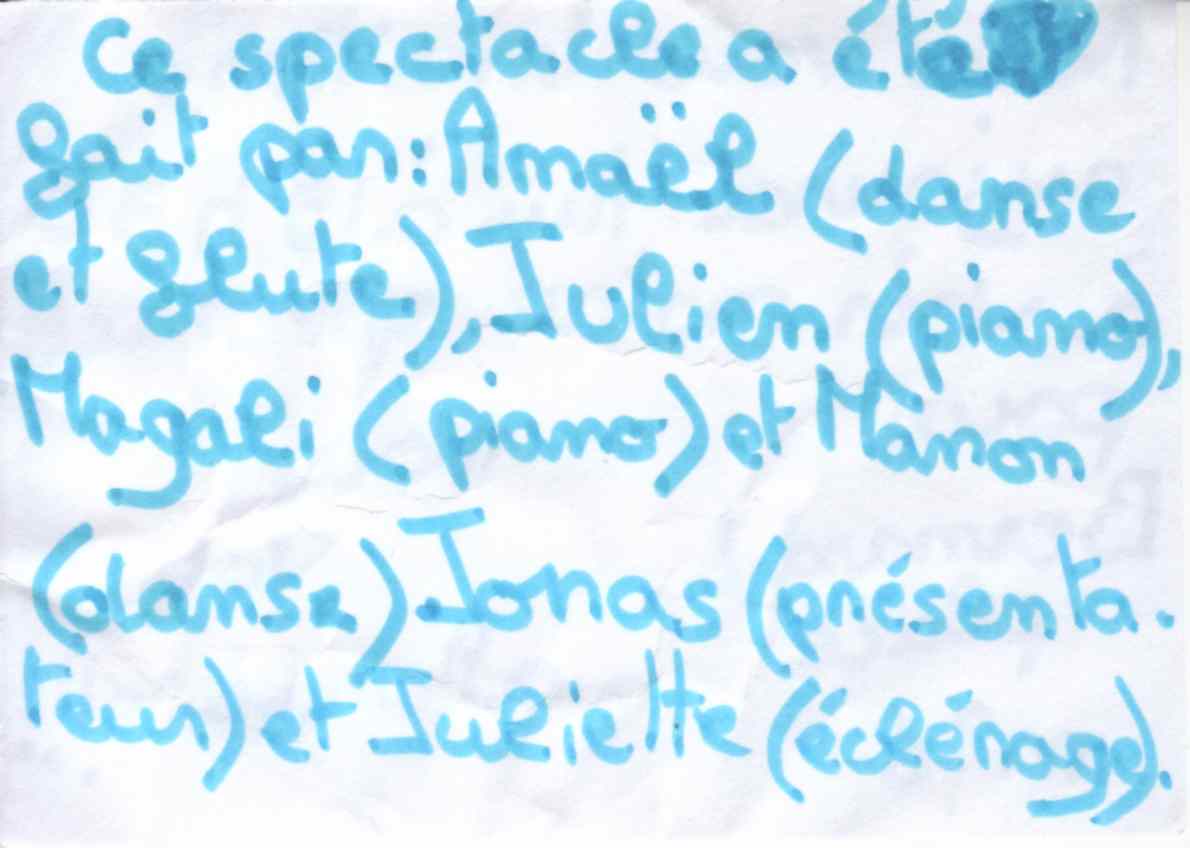 Ce spectacle a été
fait par : Amaël (danse
et flute), Julien (piano),
Magali (piano) et Manon
(danse) Jonas (présenta.
teur) et Juliette (éclérage).